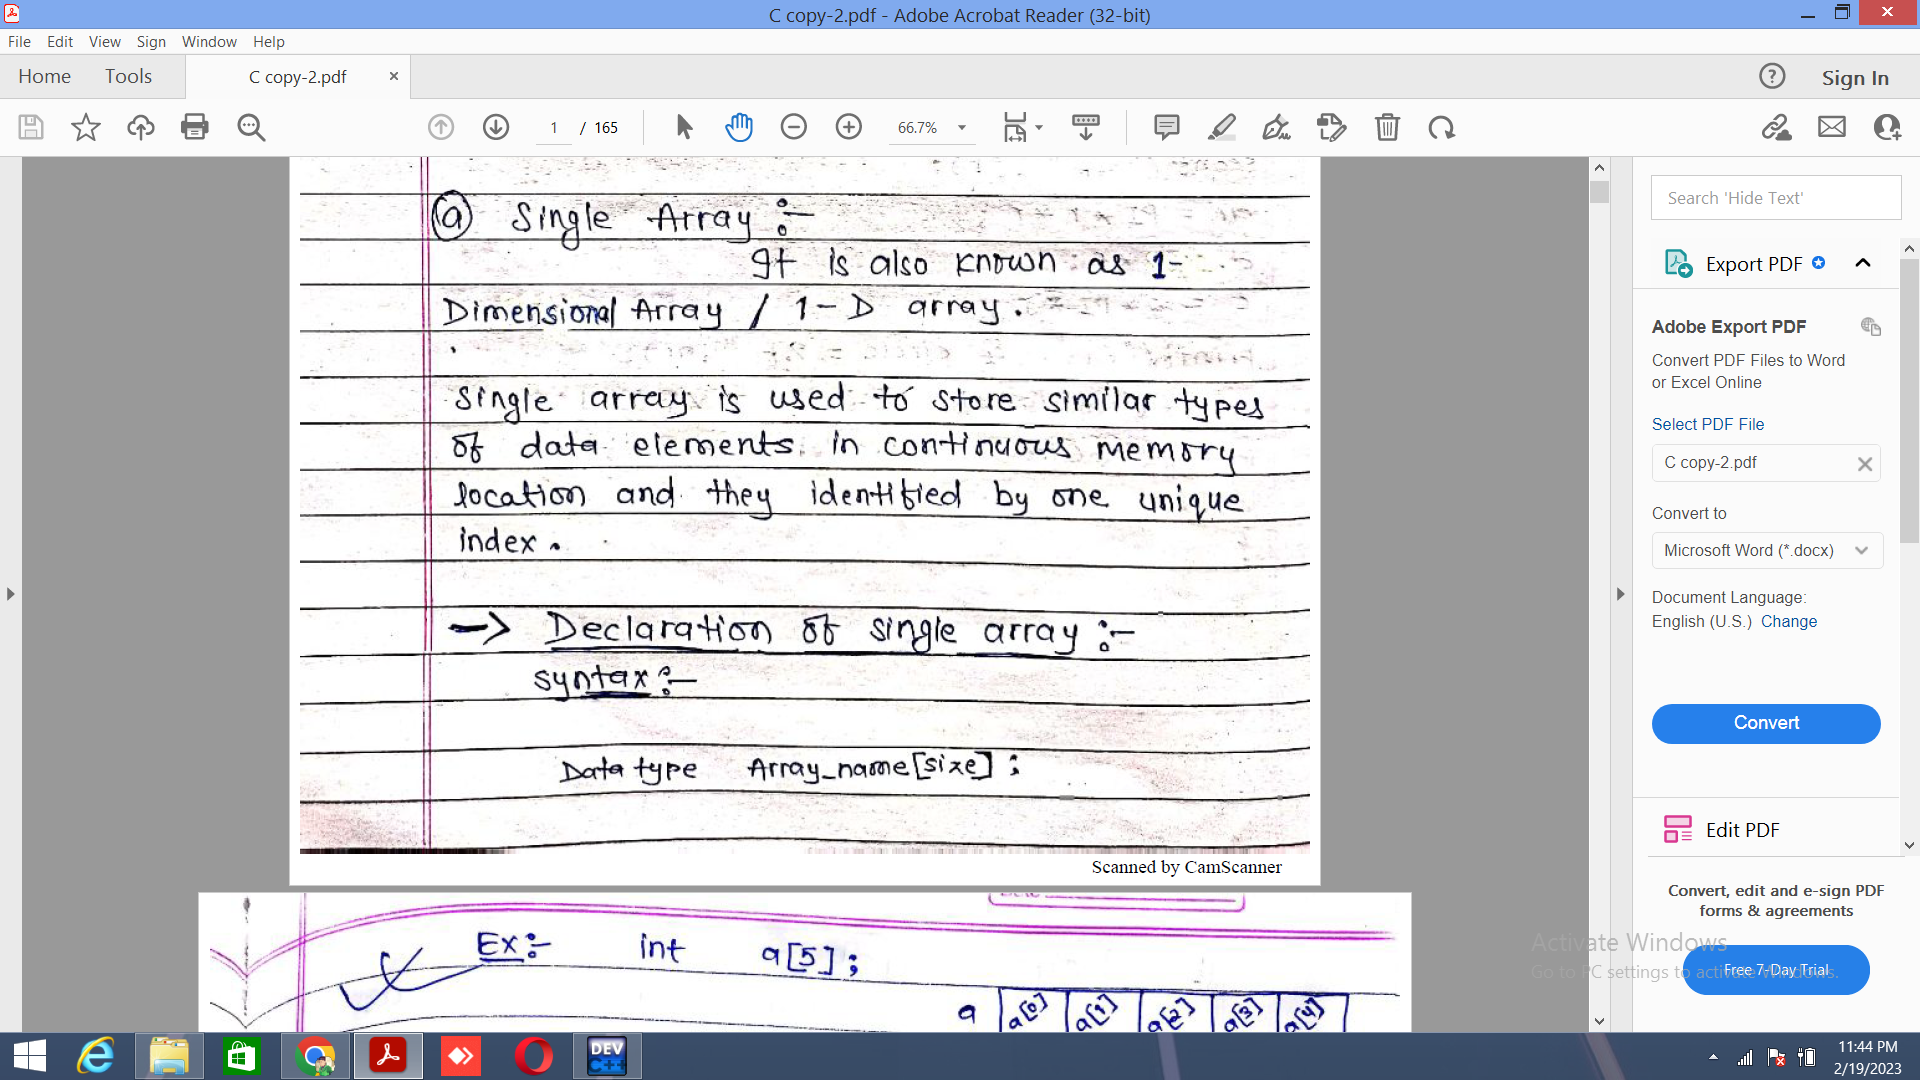 C copy-2.pdf - Adobe Acrobat Reader (32-bit)
File Edit View Sign Window Help
Home Tools C copy-2.pdf × Sign In
1 / 165 66.7%
(a) Single Array :-
It is also known as 1-
Dimensional Array / 1-D array.
Single array is used to store similar types
of data elements in continuous memory
location and they identified by one unique
index.
-> Declaration of single array :-
syntax :-
Data type Array_name[size] ;
Scanned by CamScanner
Ex :- int a[5] ;
a a[0] a[1] a[2] a[3] a[4]
Search 'Hide Text'
Export PDF
Adobe Export PDF
Convert PDF Files to Word
or Excel Online
Select PDF File
C copy-2.pdf
Convert to
Microsoft Word (*.docx)
Document Language:
English (U.S.) Change
Convert
Edit PDF
Convert, edit and e-sign PDF
forms & agreements
Free 7-Day Trial
Activate Windows
Go to PC settings to activate Windows.
DEV
C++
11:44 PM
2/19/2023